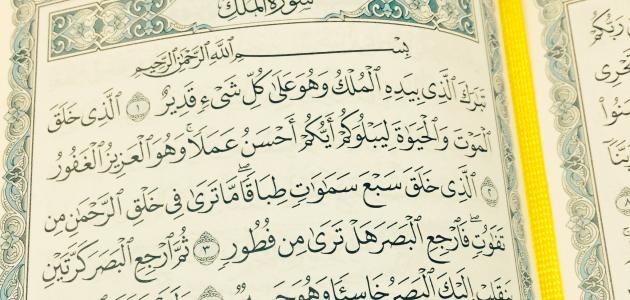 سُورَةُ المُلْكِ
بِسْمِ ٱللَّهِ ٱلرَّحْمَٰنِ ٱلرَّحِيمِ
تَبَٰرَكَ ٱلَّذِى بِيَدِهِ ٱلْمُلْكُ وَهُوَ عَلَىٰ كُلِّ شَىْءٍ قَدِيرٌ ١ ٱلَّذِى خَلَقَ
ٱلْمَوْتَ وَٱلْحَيَوٰةَ لِيَبْلُوَكُمْ أَيُّكُمْ أَحْسَنُ عَمَلًا ۚ وَهُوَ ٱلْعَزِيزُ ٱلْغَفُورُ
٢ ٱلَّذِى خَلَقَ سَبْعَ سَمَٰوَٰتٍ طِبَاقًا ۖ مَّا تَرَىٰ فِى خَلْقِ ٱلرَّحْمَٰنِ مِن
تَفَٰوُتٍ ۖ فَٱرْجِعِ ٱلْبَصَرَ هَلْ تَرَىٰ مِن فُطُورٍ ٣ ثُمَّ ٱرْجِعِ ٱلْبَصَرَ كَرَّتَيْنِ
يَنقَلِبْ إِلَيْكَ ٱلْبَصَرُ خَاسِئًا وَهُوَ